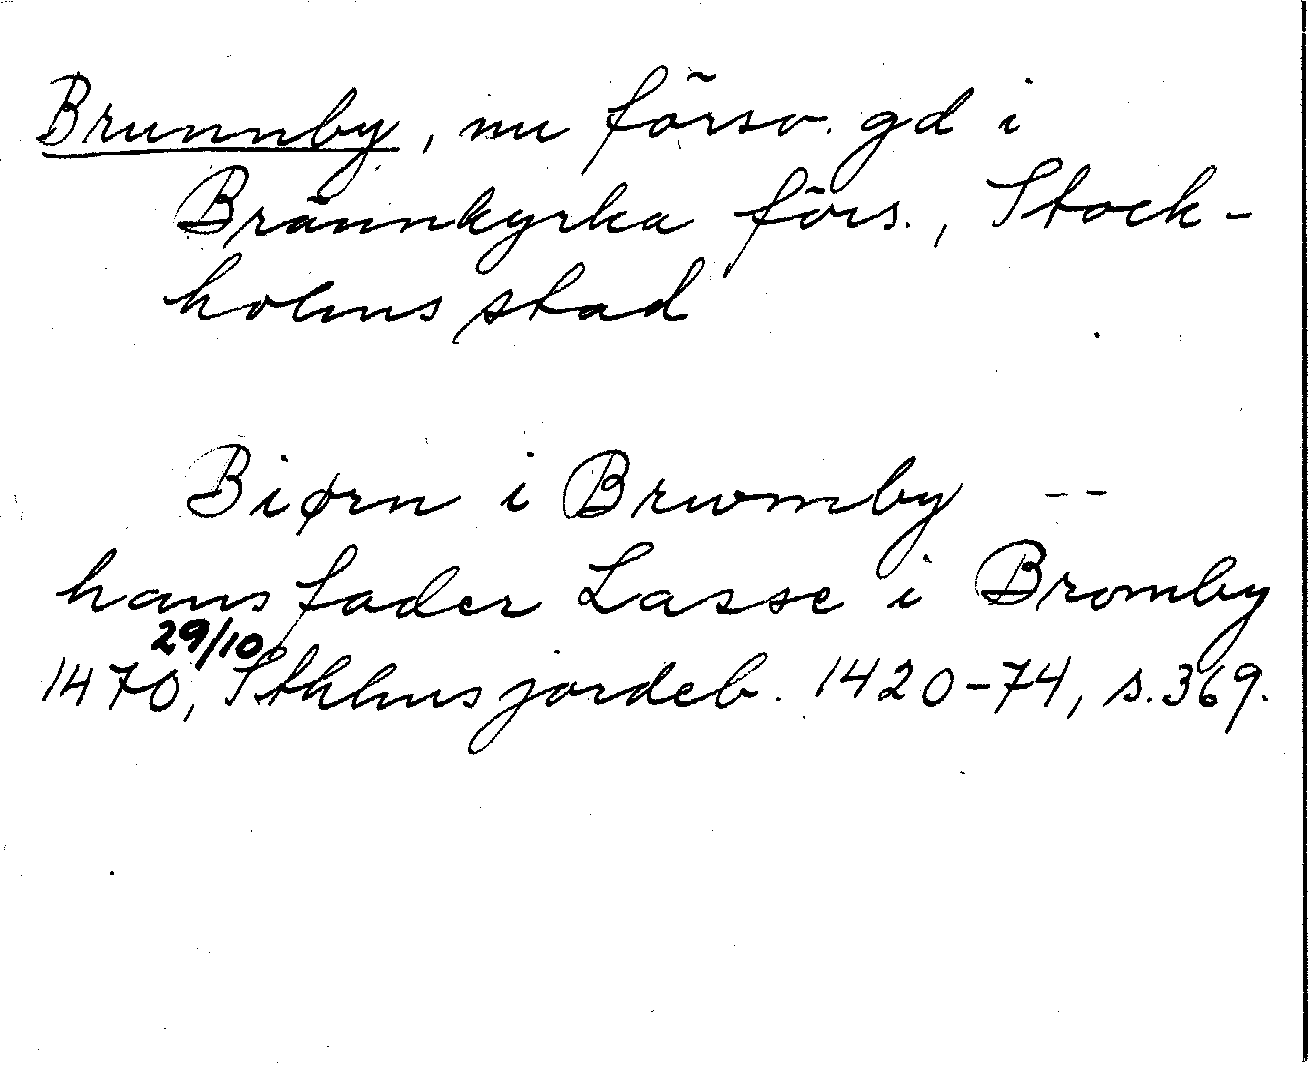 Brunnby, nu försv. gd i
Brännkyrka förs., Stock-
holms stad
Biørn i Brwmby --
hans fader Lasse i Bromby
29/10
1470, Sthlms jordeb. 1420-74, s. 369.